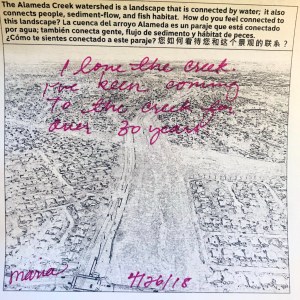 The Alameda Creek watershed is a landscape that is connected by water; it also
connects people, sediment-flow, and fish habitat. How do you feel connected to
this landscape? La cuenca del arroyo Alameda es un paraje que está conectado
por agua; también conecta gente, flujo de sedimento y hábitat de peces.
¿Cómo te sientes conectado a este paraje? 您如何看待您和这个景观的联系？
I love the creek
I've been coming
To the creek for
over 30 years
maria
4/26/18